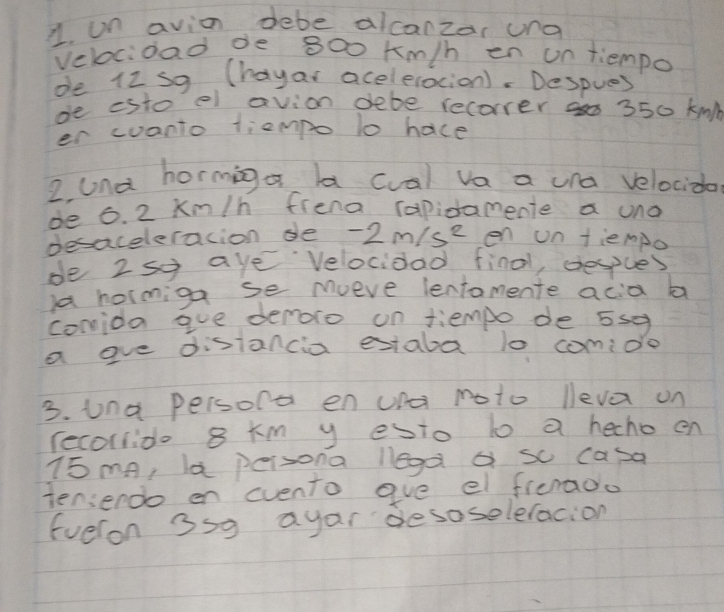 1. Un avion debe alcanzar una
velocidad de 800 Km/h en un tiempo
de 12 sg (hayar aceleracion). Despues
de esto el avion debe recorrer 350 km/h
en cuanto tiempo lo hace
2. Una hormiga la cual va a una velocidad
de 0.2 Km/h frena rapidamente a una
desaceleracion de -2 m/s² en un tiempo
de 2 sg aye velocidad final, despues
la hormiga se mueve lentamente acia la
comida que demoro un tiempo de 5sg
a que distancia estaba lo comido
3. Una persona en una moto lleva un
recorrido 8 Km y esto lo a hecho en
15 mn, la persona llega a su casa
teniendo en cuento que el frenado
fueron 3sg ayar desoseleracion